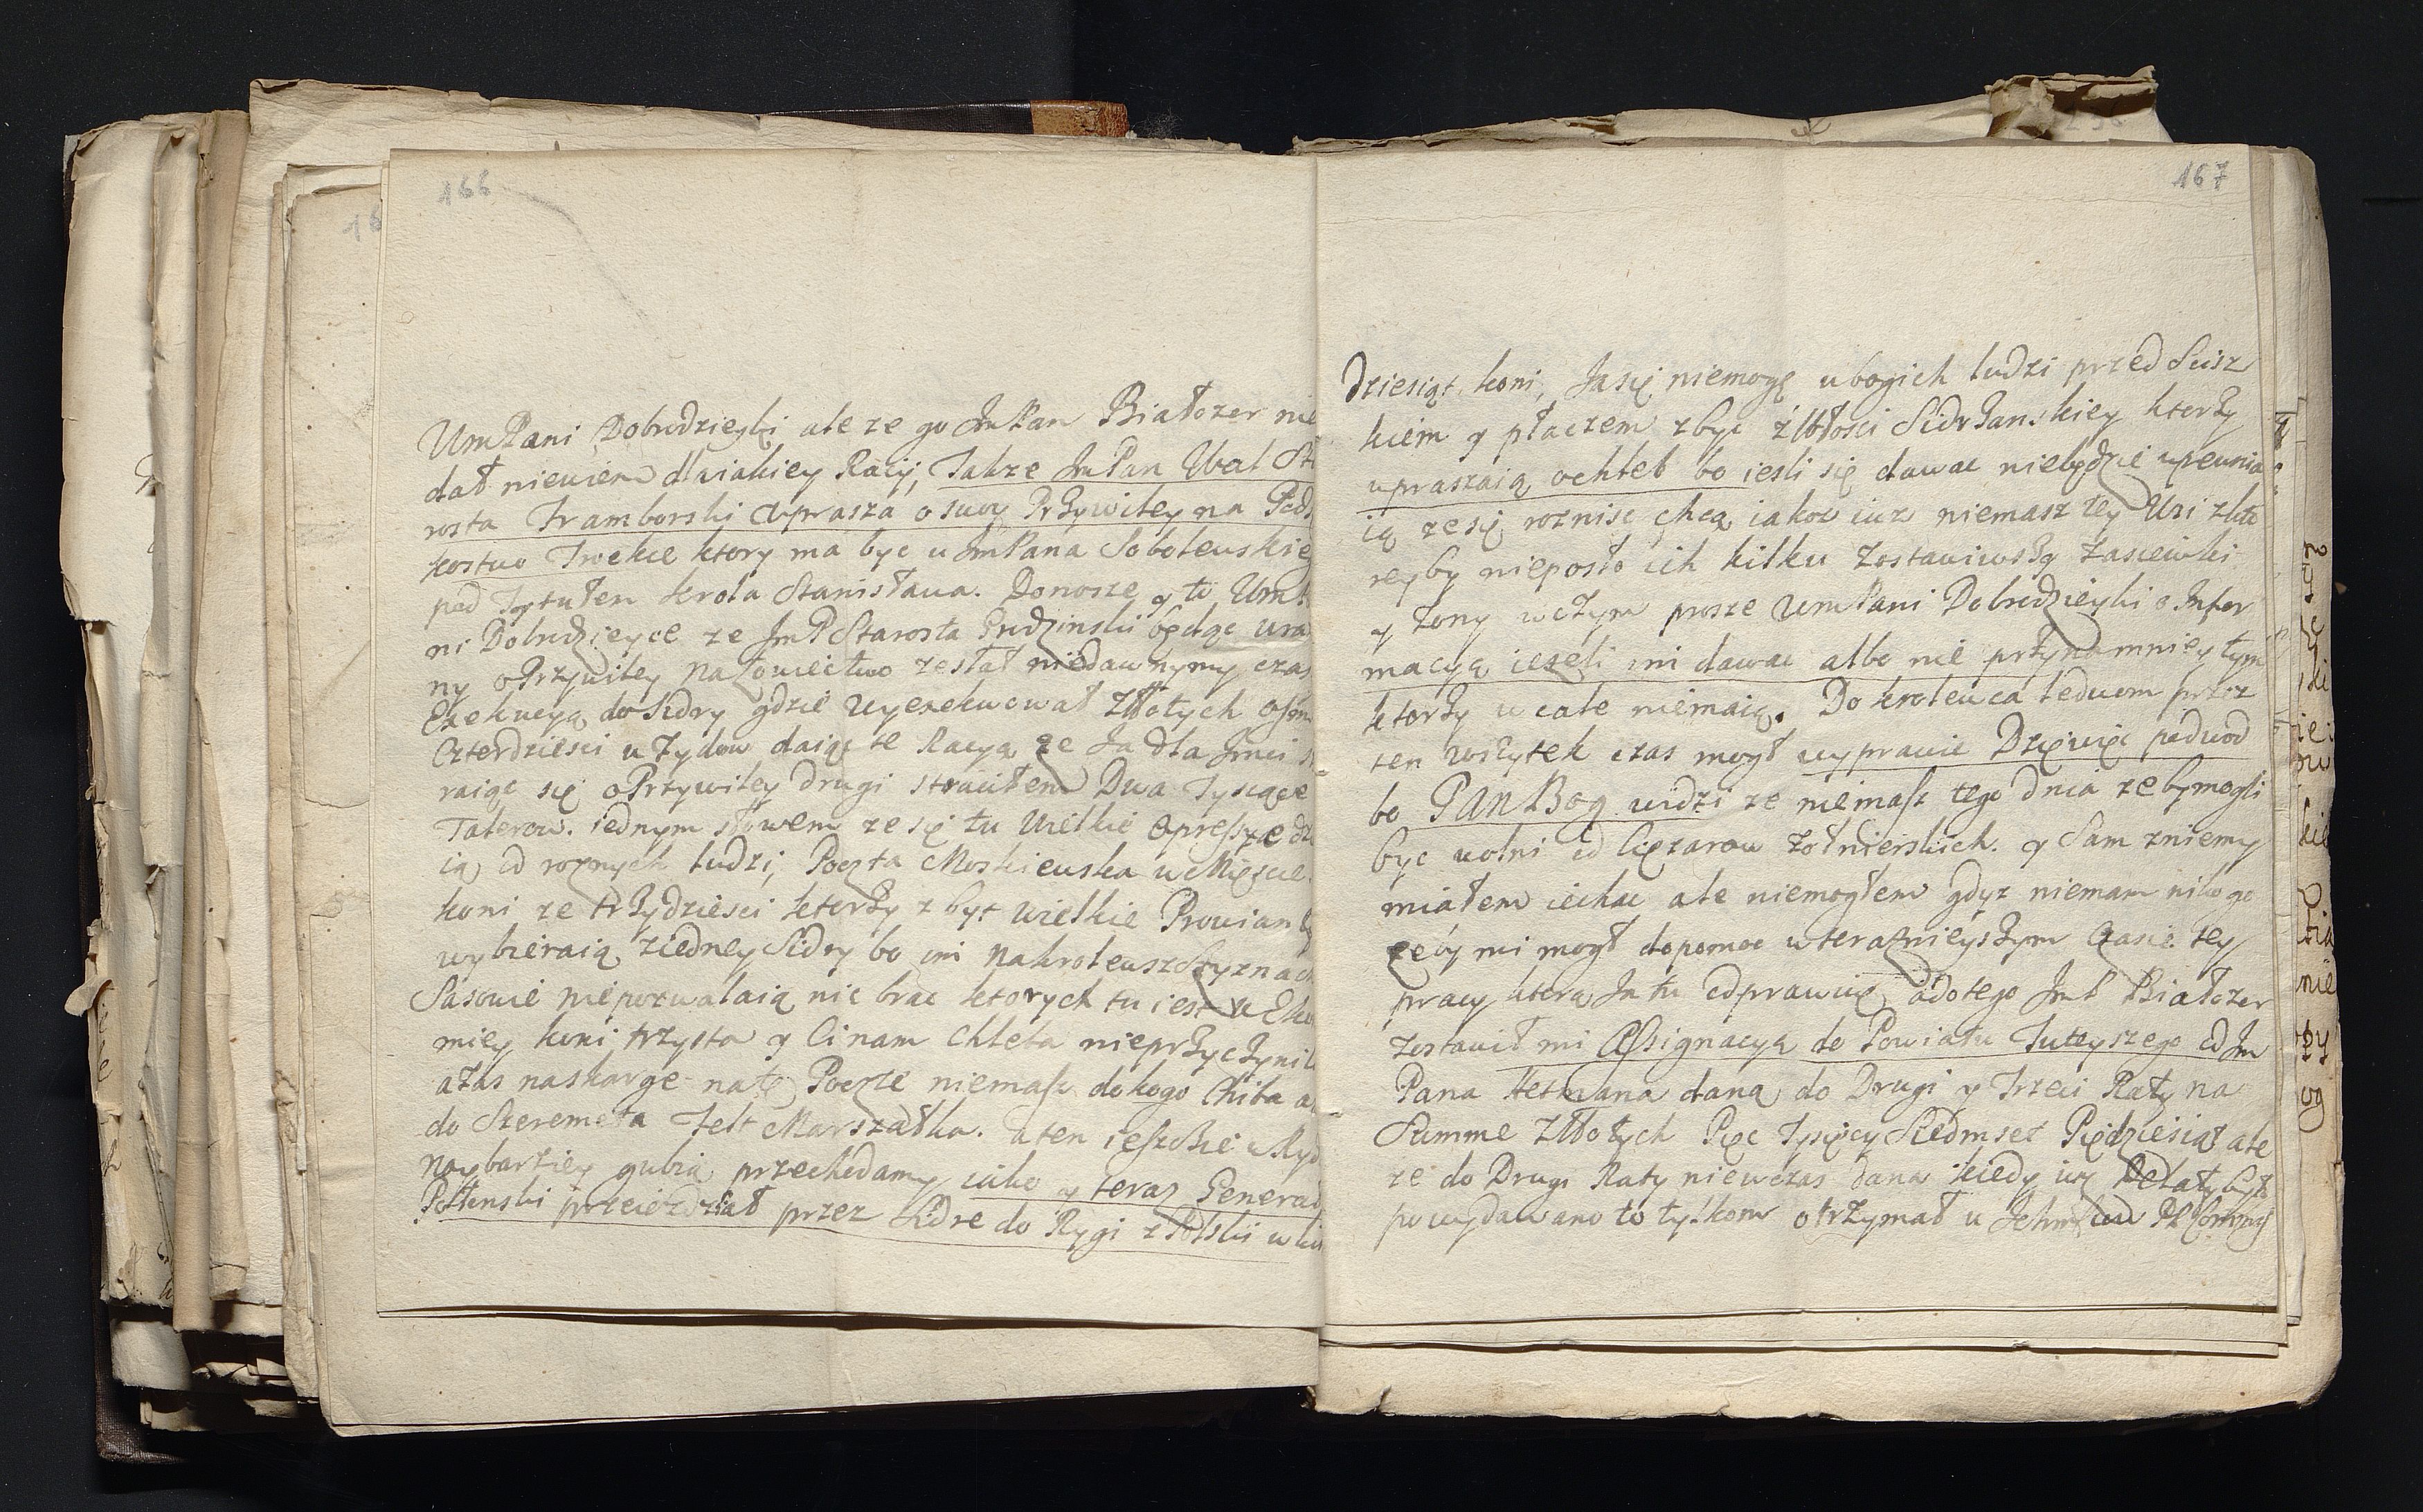 166
UmPani Dobrodzieyki ale ze go JmPan Białozer nie
dał niewiem dla iakiey Racij, Takze Jm Pan Wal Sta
rosta Tramborski uprasza o swoy Przywiley na Pods
kostwo Trockie ktory ma byc u JmPana Sobolewskie
pod Tytułem krola Stanisława. Donosze y to Um
ni Dobrodzieyce ze JmP Starosta Grudzinski będąc ura
ny o Przywiley na Łowiectwo zesłał niedawnymy czas
Exekucyą do Sidry gdzie wyexekwował Złłotych osm
Czterdziesci u Zydow daiąc te Racyą ze Ja dla Jmci s
raiąc się o Przywiley drugi straciłem Dwa Tysiące
Talerow. iednym słowem ze się tu wielkie opressye dz
ią od roznych ludzi, Poczta Moskiewska w Miescie
koni ze trzydziesci ktorzy zbyt wielkie Prowian
wybieraią ziedney Sidry bo oni na kroleuszczyznach
Sasowie niepozwalaią nic brac ktorych tu iest w Eko
miey koni trzysta y Ci nam Chleba nieprzyczynili
a zas naskarge na tę Poczte niemasz do kogo Chiba a
do Szeremeta Felt Marszałka. a ten ieszcze w Ryd
naybarziey gubią przechodamy iako y teraz Generał
przeiezdzał przez Sidre do Rygi z Polski w ki
167
dziesiąt koni, Ja się niemogę ubogich ludzi przed Scisz
kiem y płaczem zbyc z włosci Sidrzanskiey ktorzy
upraszaią o chleb bo iesli się dawac niebędzie upewnia
ią ze się roznisc chcą iakoz iuz niemasz tey Wsi zkto
reyby nieposło ich kilku zostawiwszy zasiewki
y zony w czym prosze UmPani Dobrodzieyki o Infor
macyą iezeli im dawac albo nie przynamniey tym
ktorzy wcale niemaią. Do krolewca ledwom przez
ten wszytek czas mogł wyprawic Dziewięc podwod
bo PAN Bog widzi ze niemasz tego dnia zeby mogli
byc wolni od Cięzarow zołnierskich. y Sam zniemy
miałem iechac ale niemogłem gdyz niemam nikogo
zeby mi mogł dopomoc w terazniejszym Czasie tey
pracy ktorą Ja tu odprawuię, a do tego JmP Białozer
zostawił mi Assignacyą do Powiatu Tuteyszego od Jm
Pana Hetmana daną do Drugi y Trzeci Raty na
Summe Złłotych Pięc Tysięcy Siedmset Pięcdziesiąt ale
ze do Drugi Raty niewczas dana kiedy iuz Delaty był
powydawano to tylkom otrzymał u